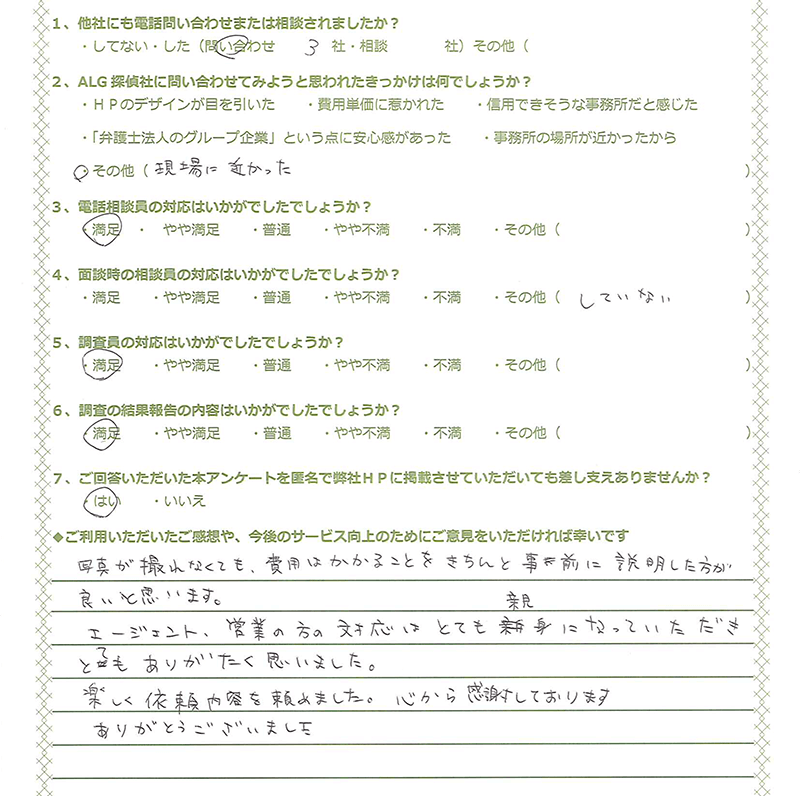 1、他社にも電話問い合わせまたは相談されましたか？
・してない・した（問い合わせ　3　社・相談　　社）その他（
2、ALG探偵社に問い合わせてみようと思われたきっかけは何でしょうか？
・HPのデザインが目を引いた　・費用単価に惹かれた　・信用できそうな事務所だと感じた
・「弁護士法人のグループ企業」という点に安心感があった　・事務所の場所が近かったから
○その他（現場に近かった　）
3、電話相談員の対応はいかがでしたでしょうか？
・満足・　やや満足　・普通　・やや不満　・不満　・その他（　）
4、面談時の相談員の対応はいかがでしたでしょうか？
・満足　・やや満足　・普通　・やや不満　・不満　・その他（　していない　）
5、調査員の対応はいかがでしたでしょうか？
・満足　・やや満足　・普通　・やや不満　・不満　・その他（　）
6、調査の結果報告の内容はいかがでしたでしょうか？
・満足　・やや満足　・普通　・やや不満　・不満　・その他（　）
7、ご回答いただいた本アンケートを匿名で弊社HPに掲載させていただいても差し支えありませんか？
・はい　・いいえ
◆ご利用いただいたご感想や、今後のサービス向上のためにご意見をいただければ幸いです
写真が撮れなくても、費用はかかることをきちんと事前に説明した方が
良いと思います。
エージェント、営業の方の対応はとても親身になっていただき
とてもありがたく思いました。
楽しく依頼内容を頼めました。心から感謝しております
ありがとうございました